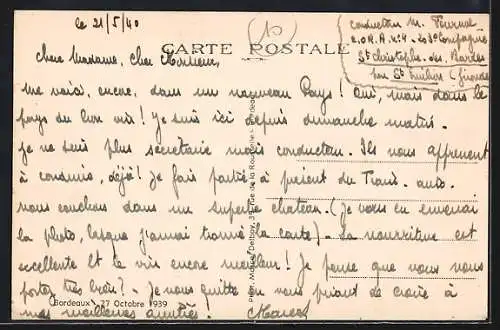 le 21/5/40
conducteur M. Fournol
C.O.R.A. n°4 - 203e Compagnie
St Christophe - des - Bardes
par St Emilion (Gironde)
CARTE POSTALE
Chère Madame, Cher Monsieur,
Me voici, encore, dans un nouveau Pays! Oui, mais dans le
pays du bon vin! Je suis ici depuis dimanche matin.
Je ne suis plus secrétaire mais conducteur. Ils nous apprennent
à conduire, déjà! Je fais partie à présent du Train-auto.
nous couchons dans un superbe château. (Je vous en enverrai
la photo, lorsque j'aurai trouvé la carte) - La nourriture est
excellente et le vin encore meilleur! Je pense que vous vous
portez très bien? - Je vous quitte en vous priant de croire à
mes meilleures amitiés!
Bordeaux 27 Octobre 1939